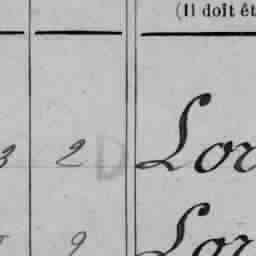 (Il doit êt
3 2 D Lor
2 Lor